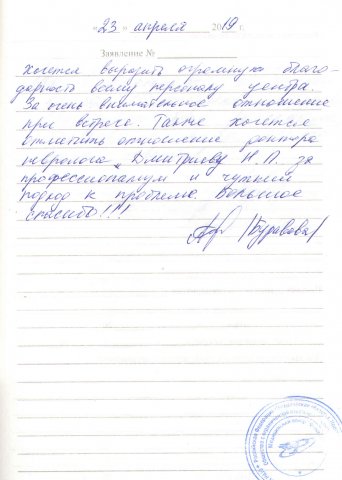 « 23 » апреля 2019 г.
Заявление №
Хочется выразить огромную благо-
дарность всему персоналу центра.
За очень внимательное отношение
при встрече. Также хочется
отметить отношение доктора
невролога Дмитриеву Н. П. за
профессионализм и чуткий
подход к проблеме. Большое
спасибо!!!
/Буравова/